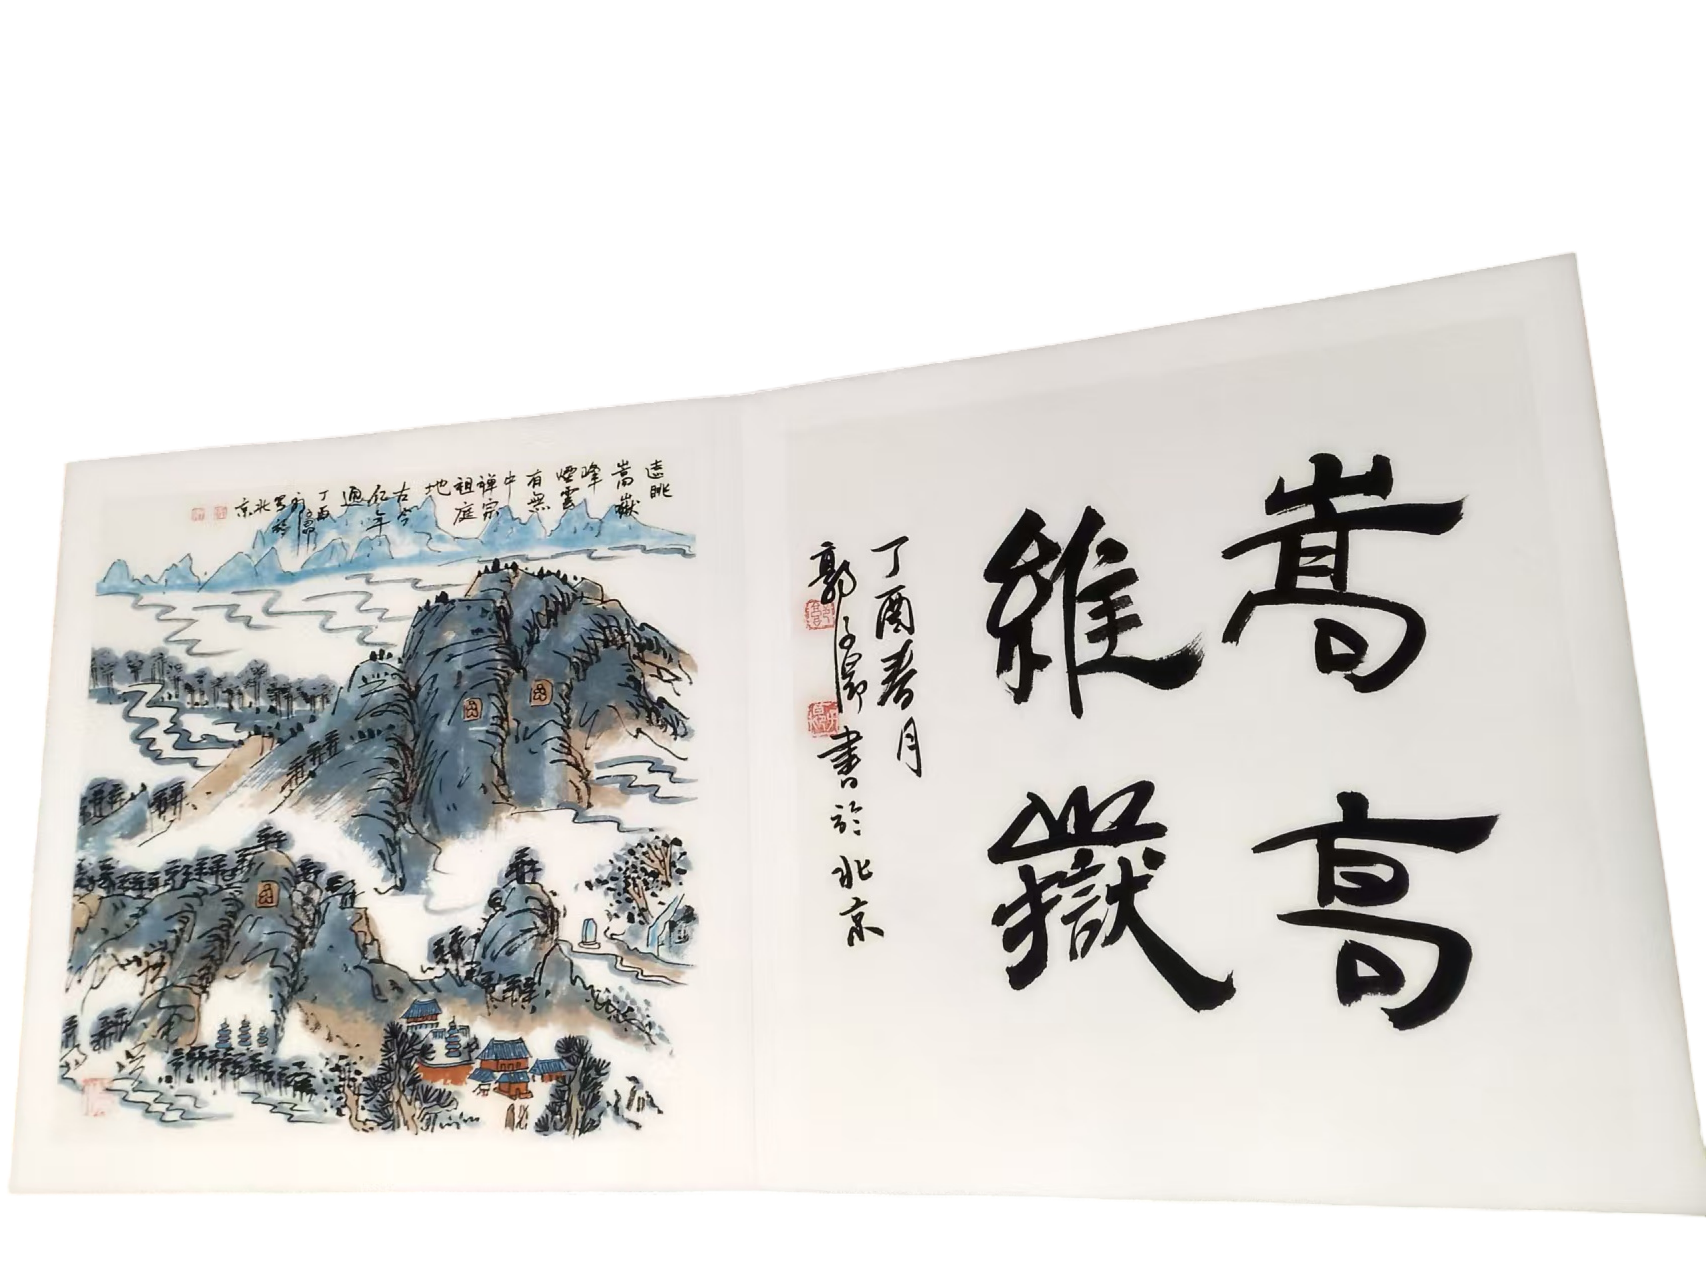 嵩高
維嶽
丁酉春月
郭子昂書於北京
遠眺
嵩嶽
峰
煙雲
有無
中
禪宗
祖庭
地
古今
億年
過
丁酉
子昂
寫於
北
京